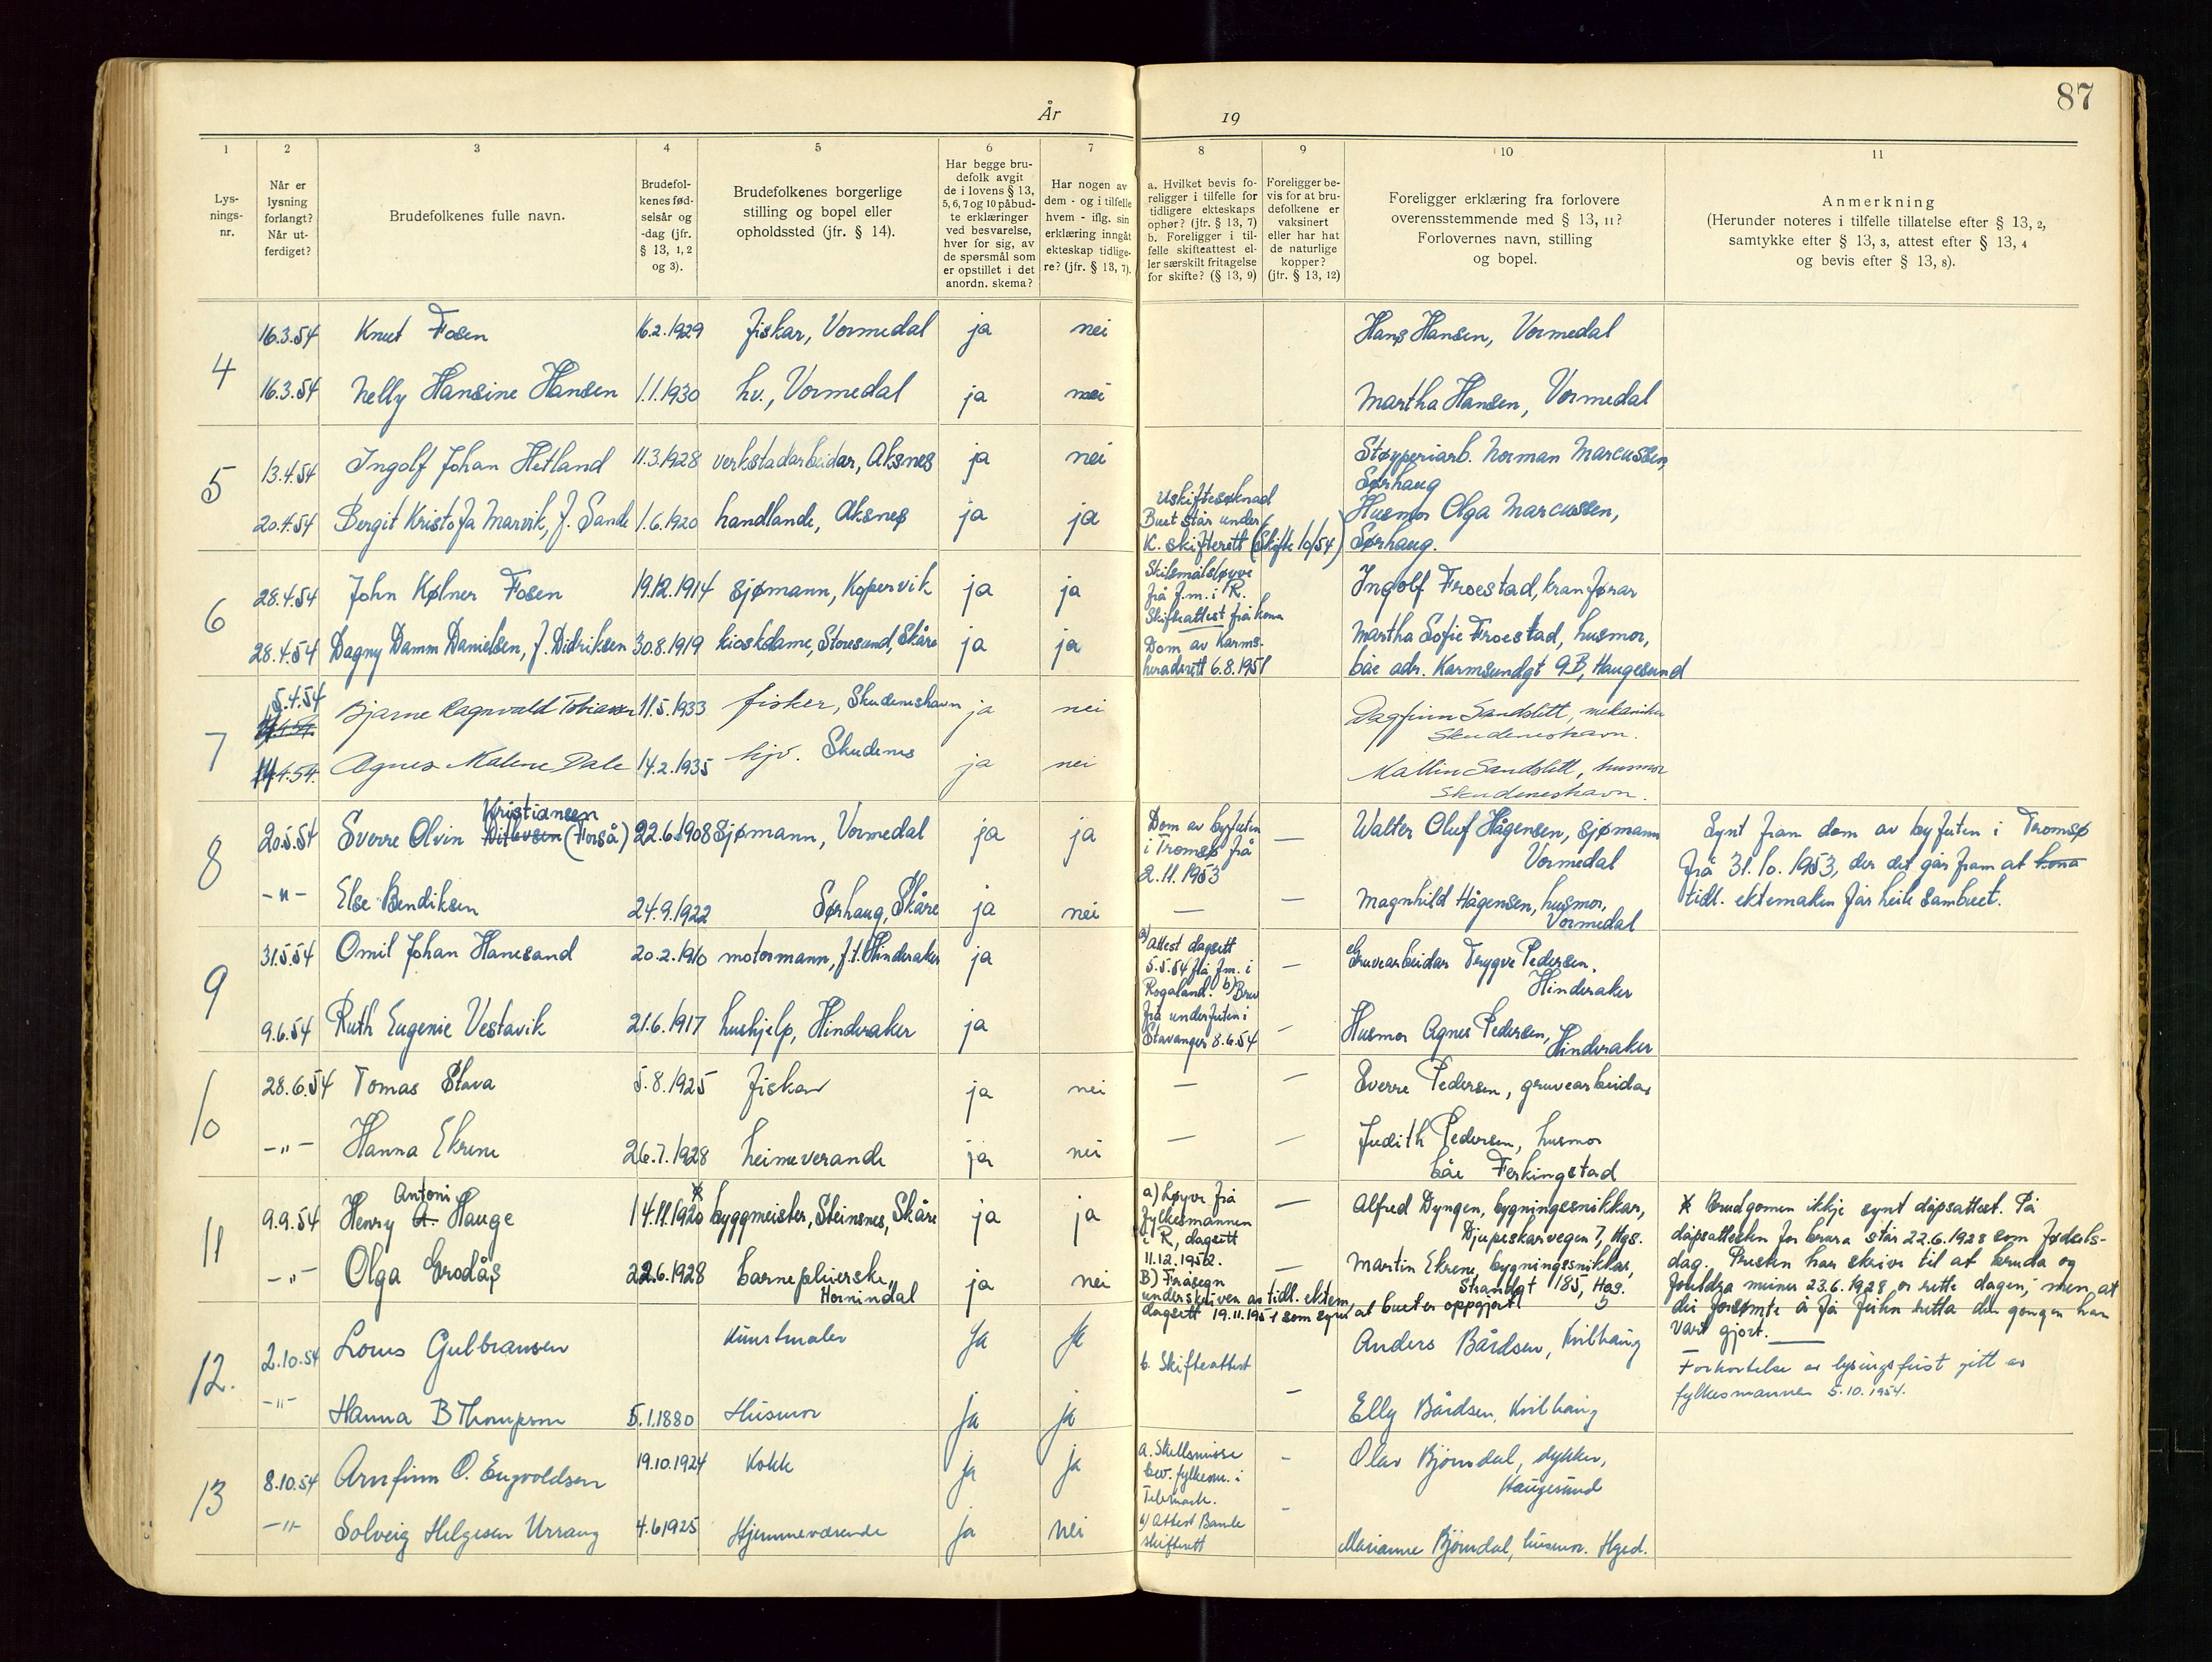 87
År 19
1 2 3 4 5 6 7 8 9 10 11
Lys-
nings-
nr.
Når er
lysning
forlangt?
Når ut-
ferdiget?
Brudefolkenes fulle navn.
Brudefol-
kenes fød-
selsår og
-dag (jfr.
§ 13, 1, 2
og 3).
Brudefolkenes borgerlige
stilling og bopel eller
opholdssted (jfr. § 14).
Har begge bru-
defolk avgit
de i lovens § 13,
5, 6, 7 og 10 påbud-
te erklæringer
ved besvarelse,
hver for sig, av
de spørsmål som
er opstillet i det
anordn. skema?
Har nogen av
dem - og i tilfelle
hvem - iflg. sin
erklæring inngåt
ekteskap tidlige-
re? (jfr. § 13, 7).
a. Hvilket bevis fo-
religger i tilfelle for
tidligere ekteskaps
ophør? (jfr. § 13, 7)
b. Foreligger i til-
felle skifteattest el-
ler særskilt fritagelse
for skifte? (§ 13, 9)
Foreligger be-
vis for at bru-
defolkene er
vaksinert
eller har hat
de naturlige
kopper?
(jfr. § 13, 12)
Foreligger erklæring fra forlovere
overensstemmende med § 13, 11?
Forlovernes navn, stilling
og bopel.
Anmerkning
(Herunder noteres i tilfelle tillatelse efter § 13, 2,
samtykke efter § 13, 3, attest efter § 13, 4
og bevis efter § 13, 8).
4
16.3.54 Knut Fosen 16.2.1929 fiskar, Vormedal ja nei Hans Hansen, Vormedal
16.3.54 Nelly Hansine Hansen 1.1.1930 hv., Vormedal ja nei Martha Hansen, Vormedal
5
13.4.54 Ingolf Johan Hetland 11.3.1928 verkstadarbeidar, Aksnes ja nei Støyperiarb. Norman Marcussen,
Sørhaug
20.4.54 Bergit Kristofa Marvik, f. Sande 1.6.1920 handlande, Aksnes ja ja
Uskiftesøknad
Buet står under
K. skifterett (Skifte 10/54)
Husmor Olga Marcussen,
Sørhaug.
6
28.4.54 John Kølner Fosen 19.12.1914 sjømann, Kopervik ja ja
Skilsmålsløyve
frå f.m. i R.
Skifteattest frå kona
Ingolf Froestad, kranførar
28.4.54 Dagny Damm Danielsen, f. Didriksen 30.8.1919 kioskdame, Storesund, Skåre ja ja
Dom av Karms.
heradsrett 6.8.1951
Martha Sofie Froestad, husmor,
båe adr. Karmsundgt 9B, Haugesund
7
5.4.54
Bjarne Ragnvald Tobiassen 11.5.1933 fisker, Skudeneshavn ja nei Dagfinn Sandslett, mekaniker
Skudeneshavn.
14.4.54. Agnes Malene Dale 14.2.1935 hjv. Skudenes ja nei Mallin Sandslett, husmor
Skudeneshavn.
8
Kristiansen
20.5.54 Sverre Olvin (Forså) 22.6.1908 Sjømann, Vormedal ja ja
Dom av byfuten
i Tromsø frå
2.11.1953
— Walter Oluf Hågensen, sjømann
Vormedal
Synt fram dom av byfuten i Tromsø
frå 31.10.1953, der det går fram at kona
tidl. ektemaken får heile sambuet.
-"- Else Bendiksen 24.9.1922 Sørhaug, Skåre ja nei — — Magnhild Hågensen, husmor,
Vormedal
9
31.5.54 Omil Johan Hanesand 20.2.1910 motormann, f.t. Hinderaker ja
a) Attest dagsett
5.5.54 frå fm. i
Rogaland. b) Brev
frå underfuten i
Stavanger 8.6.54
— Gruvearbeidar Trygve Pedersen,
Hinderaker
9.6.54 Ruth Eugenie Vestavik 21.6.1917 hushjelp, Hinderaker ja — Husmor Agnes Pedersen,
Hinderaker
10
28.6.54 Tomas Stava 5.8.1925 fiskar ja nei — — Sverre Pedersen, gruvearbeidar
-"- Hanna Ekrene 26.7.1928 heimeverande ja nei — — Judith Pedersen, husmor
båe Ferkingstad
11
Antoni
9.9.54 Henry A. Hauge 14.11.1920 x byggmeister, Steinsnes, Skåre ja ja
a) Løyve frå
fylkesmannen
i R, dagsett
11.12.1952.
B) Fråsegn
underskriven av tidl. ektem,
dagsett 19.11.1951 som syner at buet er oppgjort.
— Alfred Dyngen, bygningssnikkar,
Djupaskarvegen 7, Hgs.
x Brudgomen ikkje synt dåpsattest. På
dåpsattesten for brura står 22.6.1928 som fødsels-
dag. Presten har skrive til at bruda og
foreldra meiner 23.6.1928 er rette dagen, men at
dei forsømte å få feilen retta den gongen han
vart gjort.
-"- Olga Grodås 22.6.1928 barnepleierske, Hornindal ja nei — Martin Ekrene, bygningssnikkar,
Strandgt 185, Hag.
12.
2.10.54 Louis Gulbransen Kunstmaler Ja Ja
b. Skifteattest
Anders Bårdsen, Kvilhaug
Forkortelse av lysingsfrist gitt av
fylkesmannen 5.10.1954.
-"- Hanna B Thompson 5.1.1880 Husmor ja ja — Elly Bårdsen, Kvilhaug
13
8.10.54 Arnfinn O. Engvoldsen 19.10.1924 Kokk ja ja
a. Skillsmisse
bev. fylkesm. i
Telemark.
b) Attest Bamle
skifterett
- Olav Bjørndal, dykker,
Haugesund
-"- Solveig Helgesen Urrang 4.6.1925 Hjemmeværende ja nei - Marianne Bjørndal, husmor. Hgsd.